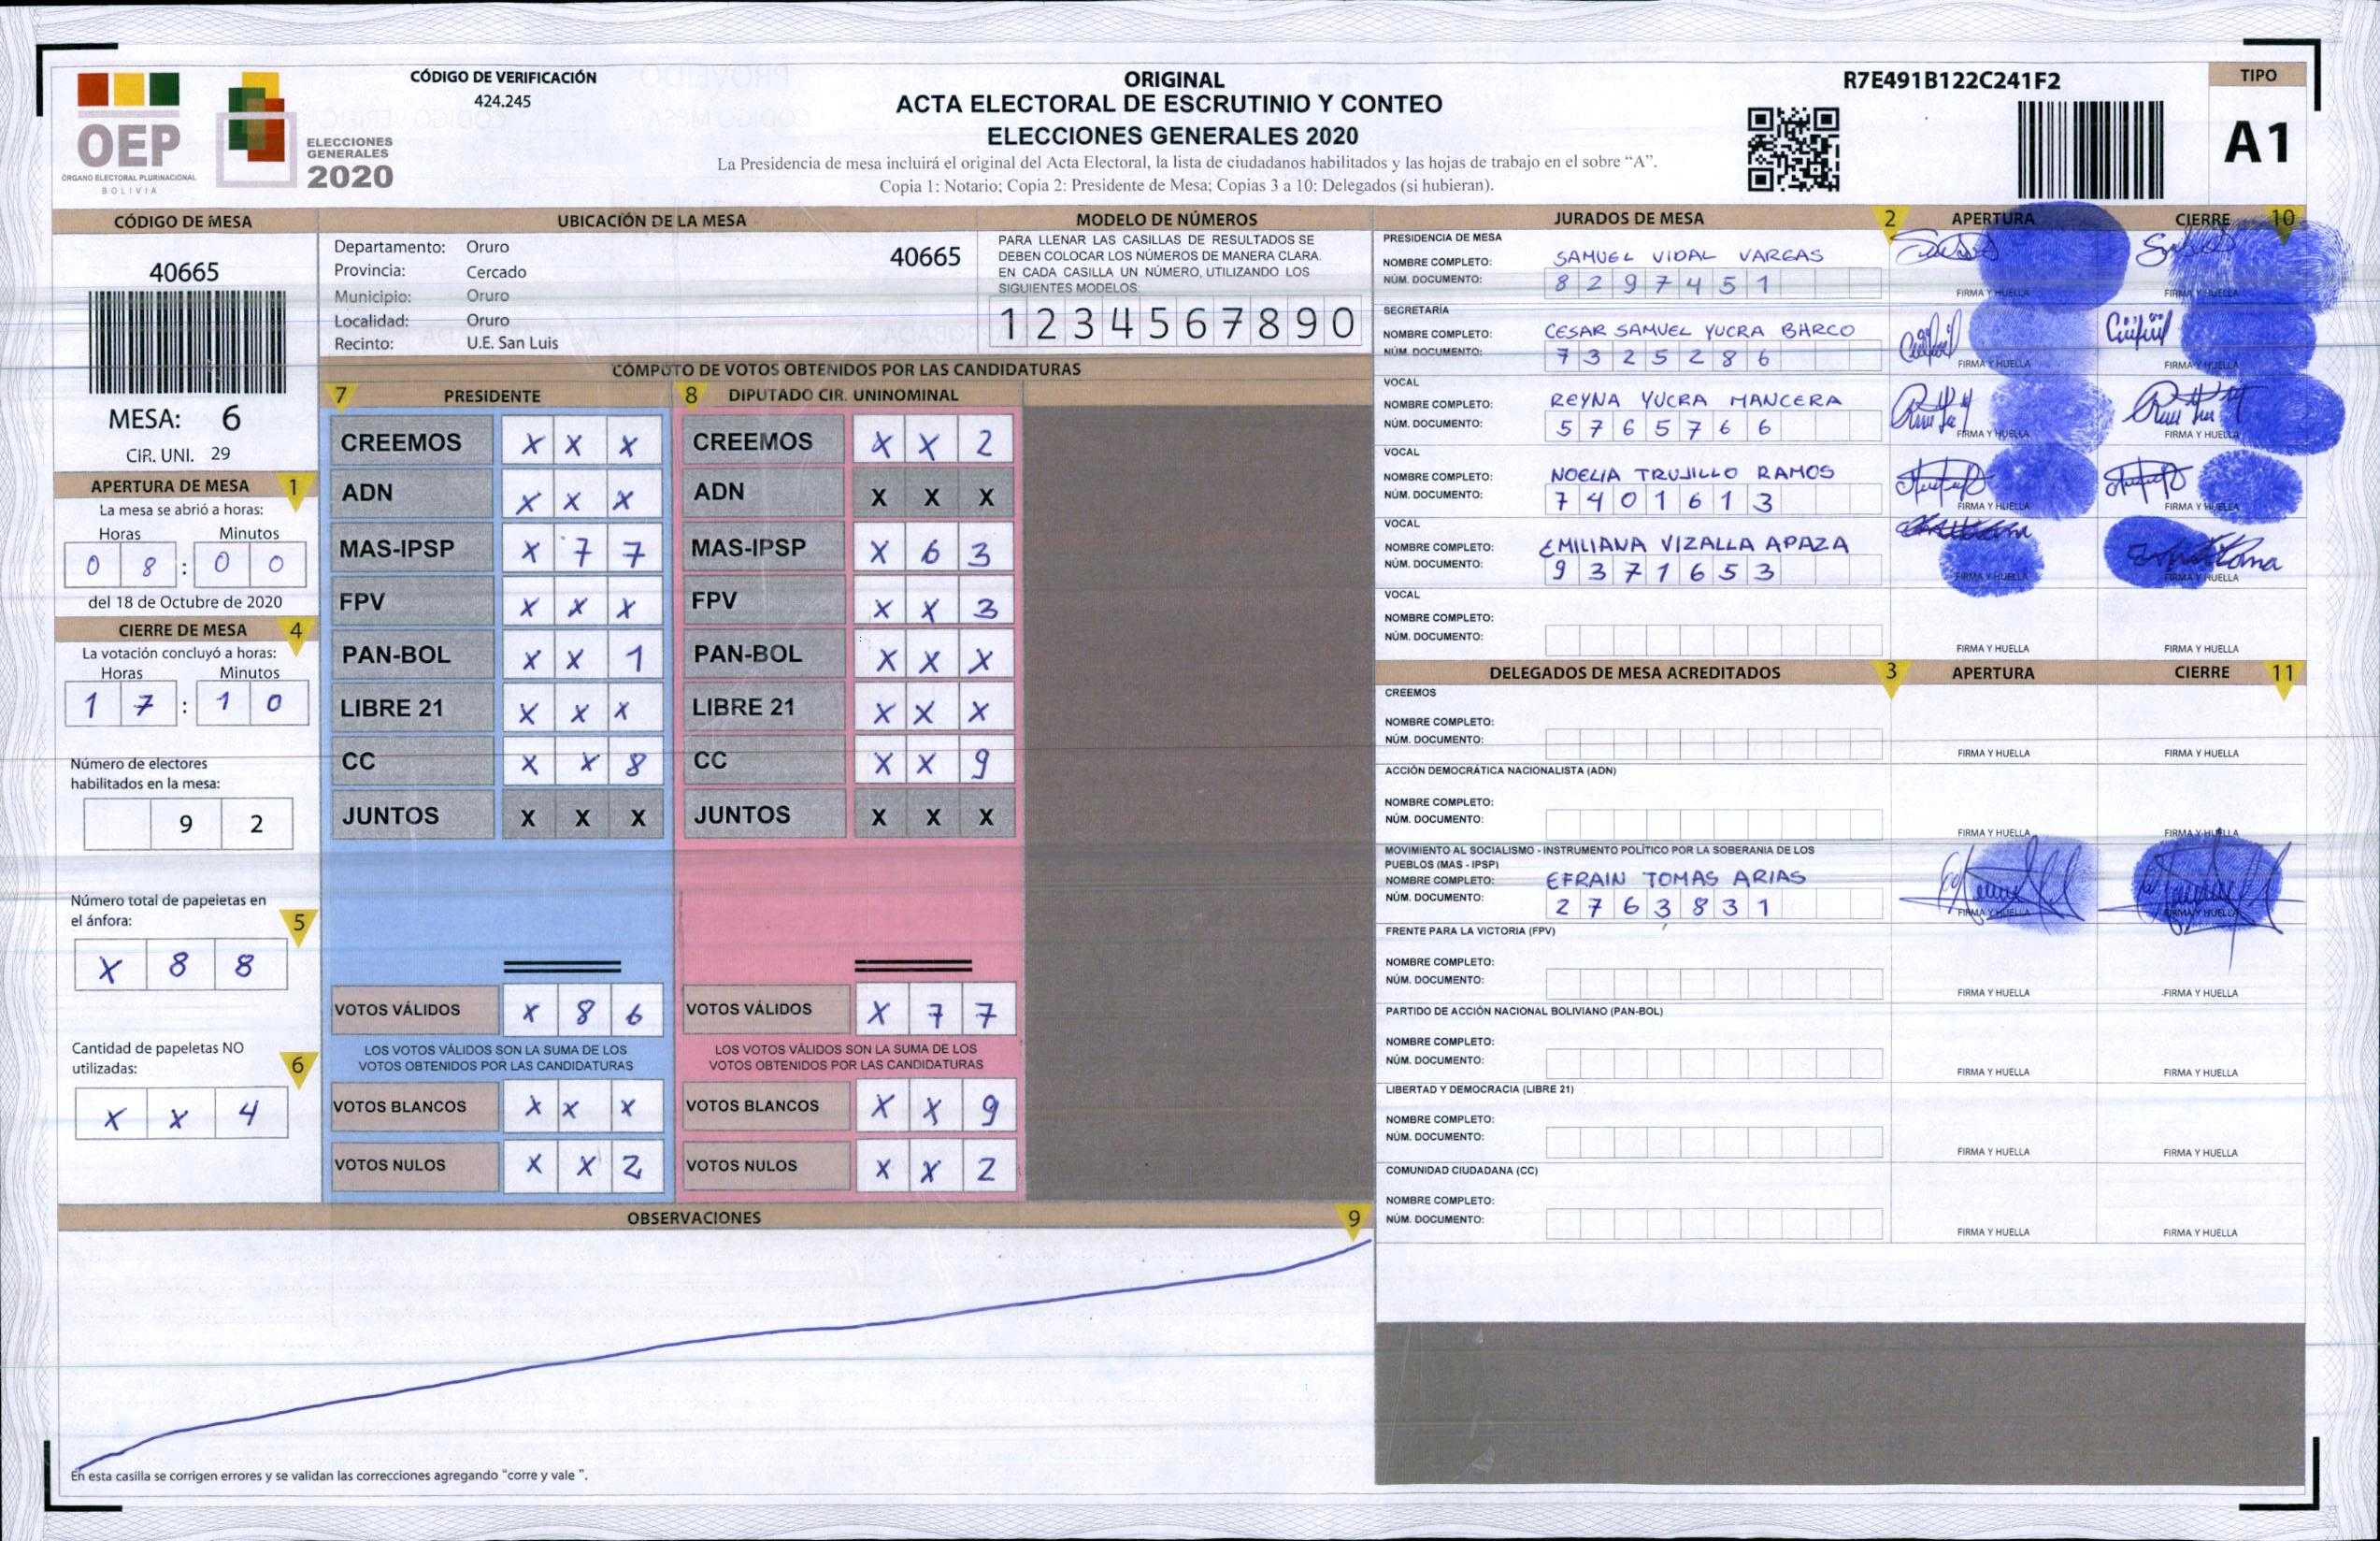 OEP
ÓRGANO ELECTORAL PLURINACIONAL
BOLIVIA
ELECCIONES
GENERALES
2020
CÓDIGO DE VERIFICACIÓN
424.245
ORIGINAL
ACTA ELECTORAL DE ESCRUTINIO Y CONTEO
ELECCIONES GENERALES 2020
La Presidencia de mesa incluirá el original del Acta Electoral, la lista de ciudadanos habilitados y las hojas de trabajo en el sobre “A”.
Copia 1: Notario; Copia 2: Presidente de Mesa; Copias 3 a 10: Delegados (si hubieran).
R7E491B122C241F2
TIPO
A1
CÓDIGO DE MESA
40665
MESA: 6
CIR. UNI. 29
APERTURA DE MESA 1
La mesa se abrió a horas:
Horas Minutos
0 8 : 0 0
del 18 de Octubre de 2020
CIERRE DE MESA 4
La votación concluyó a horas:
Horas Minutos
1 7 : 1 0
Número de electores
habilitados en la mesa:
9 2
Número total de papeletas en
el ánfora: 5
X 8 8
Cantidad de papeletas NO
utilizadas: 6
X X 4
UBICACIÓN DE LA MESA
Departamento: Oruro 40665
Provincia: Cercado
Municipio: Oruro
Localidad: Oruro
Recinto: U.E. San Luis
MODELO DE NÚMEROS
PARA LLENAR LAS CASILLAS DE RESULTADOS SE
DEBEN COLOCAR LOS NÚMEROS DE MANERA CLARA.
EN CADA CASILLA UN NÚMERO, UTILIZANDO LOS
SIGUIENTES MODELOS
1 2 3 4 5 6 7 8 9 0
CÓMPUTO DE VOTOS OBTENIDOS POR LAS CANDIDATURAS
7 PRESIDENTE 8 DIPUTADO CIR. UNINOMINAL
CREEMOS X X X CREEMOS X X 2
ADN X X X ADN X X X
MAS-IPSP X 7 7 MAS-IPSP X 6 3
FPV X X X FPV X X 3
PAN-BOL X X 1 PAN-BOL X X X
LIBRE 21 X X X LIBRE 21 X X X
CC X X 8 CC X X 9
JUNTOS X X X JUNTOS X X X
VOTOS VÁLIDOS X 8 6 VOTOS VÁLIDOS X 7 7
LOS VOTOS VÁLIDOS SON LA SUMA DE LOS LOS VOTOS VÁLIDOS SON LA SUMA DE LOS
VOTOS OBTENIDOS POR LAS CANDIDATURAS VOTOS OBTENIDOS POR LAS CANDIDATURAS
VOTOS BLANCOS X X X VOTOS BLANCOS X X 9
VOTOS NULOS X X 2 VOTOS NULOS X X 2
OBSERVACIONES 9
En esta casilla se corrigen errores y se validan las correcciones agregando "corre y vale ".
JURADOS DE MESA 2 APERTURA CIERRE 10
PRESIDENCIA DE MESA
NOMBRE COMPLETO: SAMUEL VIDAL VARGAS
NÚM. DOCUMENTO: 8 2 9 7 4 5 1
FIRMA Y HUELLA FIRMA Y HUELLA
SECRETARÍA
NOMBRE COMPLETO: CESAR SAMUEL YUCRA BARCO
NÚM. DOCUMENTO: 7 3 2 5 2 8 6
FIRMA Y HUELLA FIRMA Y HUELLA
VOCAL
NOMBRE COMPLETO: REYNA YUCRA MANCERA
NÚM. DOCUMENTO: 5 7 6 5 7 6 6
FIRMA Y HUELLA FIRMA Y HUELLA
VOCAL
NOMBRE COMPLETO: NOELIA TRUJILLO RAMOS
NÚM. DOCUMENTO: 7 4 0 1 6 1 3
FIRMA Y HUELLA FIRMA Y HUELLA
VOCAL
NOMBRE COMPLETO: EMILIANA VIZALLA APAZA
NÚM. DOCUMENTO: 9 3 7 1 6 5 3
FIRMA Y HUELLA FIRMA Y HUELLA
VOCAL
NOMBRE COMPLETO:
NÚM. DOCUMENTO:
FIRMA Y HUELLA FIRMA Y HUELLA
DELEGADOS DE MESA ACREDITADOS 3 APERTURA CIERRE 11
CREEMOS
NOMBRE COMPLETO:
NÚM. DOCUMENTO:
FIRMA Y HUELLA FIRMA Y HUELLA
ACCIÓN DEMOCRÁTICA NACIONALISTA (ADN)
NOMBRE COMPLETO:
NÚM. DOCUMENTO:
FIRMA Y HUELLA FIRMA Y HUELLA
MOVIMIENTO AL SOCIALISMO - INSTRUMENTO POLÍTICO POR LA SOBERANIA DE LOS
PUEBLOS (MAS - IPSP)
NOMBRE COMPLETO: EFRAIN TOMAS ARIAS
NÚM. DOCUMENTO: 2 7 6 3 8 3 1
FIRMA Y HUELLA FIRMA Y HUELLA
FRENTE PARA LA VICTORIA (FPV)
NOMBRE COMPLETO:
NÚM. DOCUMENTO:
FIRMA Y HUELLA FIRMA Y HUELLA
PARTIDO DE ACCIÓN NACIONAL BOLIVIANO (PAN-BOL)
NOMBRE COMPLETO:
NÚM. DOCUMENTO:
FIRMA Y HUELLA FIRMA Y HUELLA
LIBERTAD Y DEMOCRACIA (LIBRE 21)
NOMBRE COMPLETO:
NÚM. DOCUMENTO:
FIRMA Y HUELLA FIRMA Y HUELLA
COMUNIDAD CIUDADANA (CC)
NOMBRE COMPLETO:
NÚM. DOCUMENTO:
FIRMA Y HUELLA FIRMA Y HUELLA